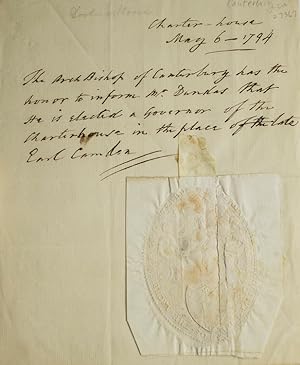 Charter-house
May 6 - 1794
The Arch Bishop of Canterbury has the
honor to inform Mr. Dundas that
He is elected a Governor of the
Charterhouse in the place of the late
Earl Camden